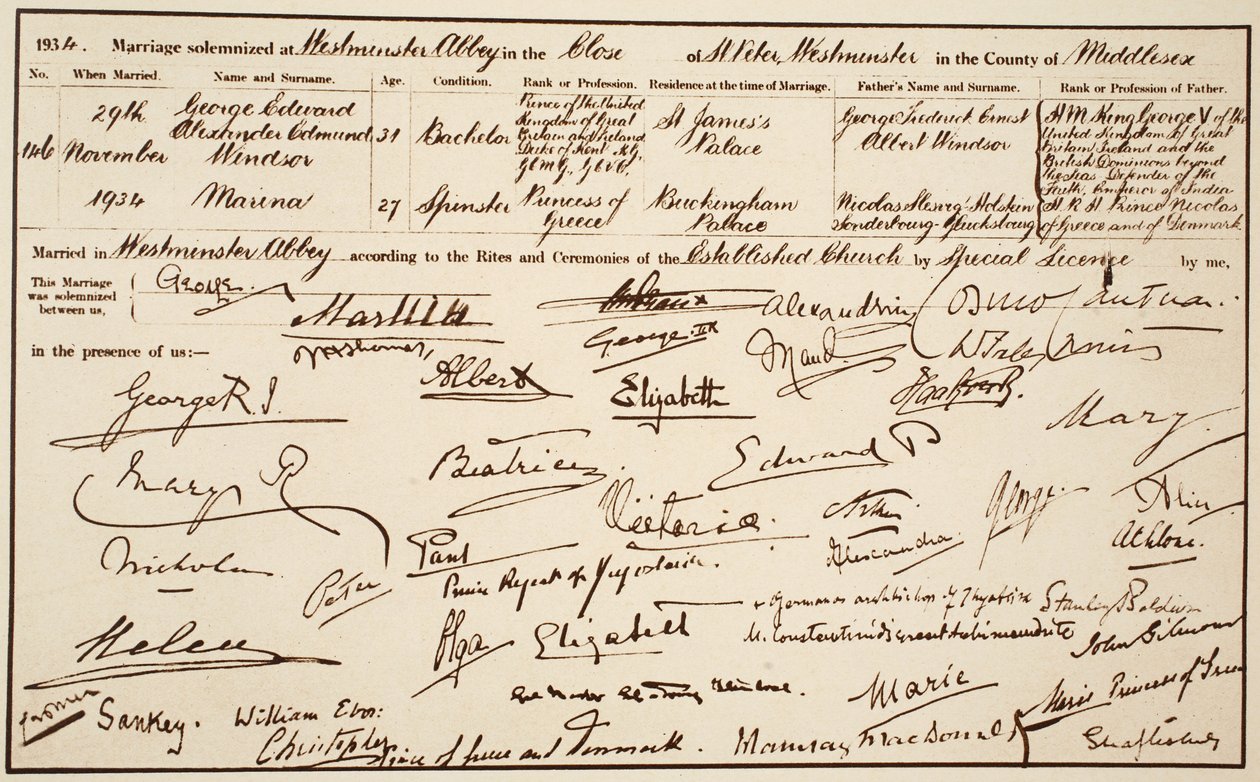 1934. Marriage solemnized at Westminster Abbey in the Close of St Peter, Westminster in the County of Middlesex
No. When Married. Name and Surname. Age. Condition. Rank or Profession. Residence at the time of Marriage. Father's Name and Surname. Rank or Profession of Father.
146
29th November 1934
George Edward
Alexander Edmund
Windsor
31
Bachelor
Prince of the United
Kingdom of Great
Britain and Ireland
Duke of Kent. K.G,
G.C.M.G., G.C.V.O.,
St James's
Palace
George Frederick Ernest
Albert Windsor
H M King George V of the
United Kingdom of Great
Britain, Ireland and the
British Dominions beyond
the Seas. Defender of the
Faith, Emperor of India
Marina
27
Spinster
Princess of
Greece
Buckingham
Palace
Nicolas Slesvig-Holstein
Sonderbourg-Glucksbourg
H. R. H. Prince Nicolas
of Greece and of Denmark.
Married in Westminster Abbey according to the Rites and Ceremonies of the Established Church by Special Licence by me,
This Marriage
was solemnized
between us,
George.
Marina
Alexandrine
Cosmo Cantuar:
George. IIR
Maud.
in the presence of us:—
George R.I.
Albert
Elizabeth
Haakon R.
Mary.
Mary R
Beatrice.
Edward P
Victoria.
Arthur.
George.
Alice
Athlone.
Nicholas
Peter
Paul
Prince Regent of Yugoslavia.
Alexandra.
+ Germanos archbishop of Thyatira
Stanley Baldwin
Helen
Olga
Elizabeth
M. Constantinidis great archimandrite
John Gilmour
Marie
Marie Princess of Greece
Sankey.
William Ebor:
Christopher
Prince of Greece and Denmark.
J Ramsay MacDonald
Shaftesbury